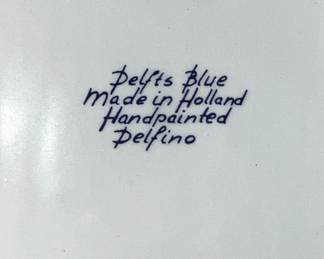 Delfts Blue
Made in Holland
Handpainted
Delfino